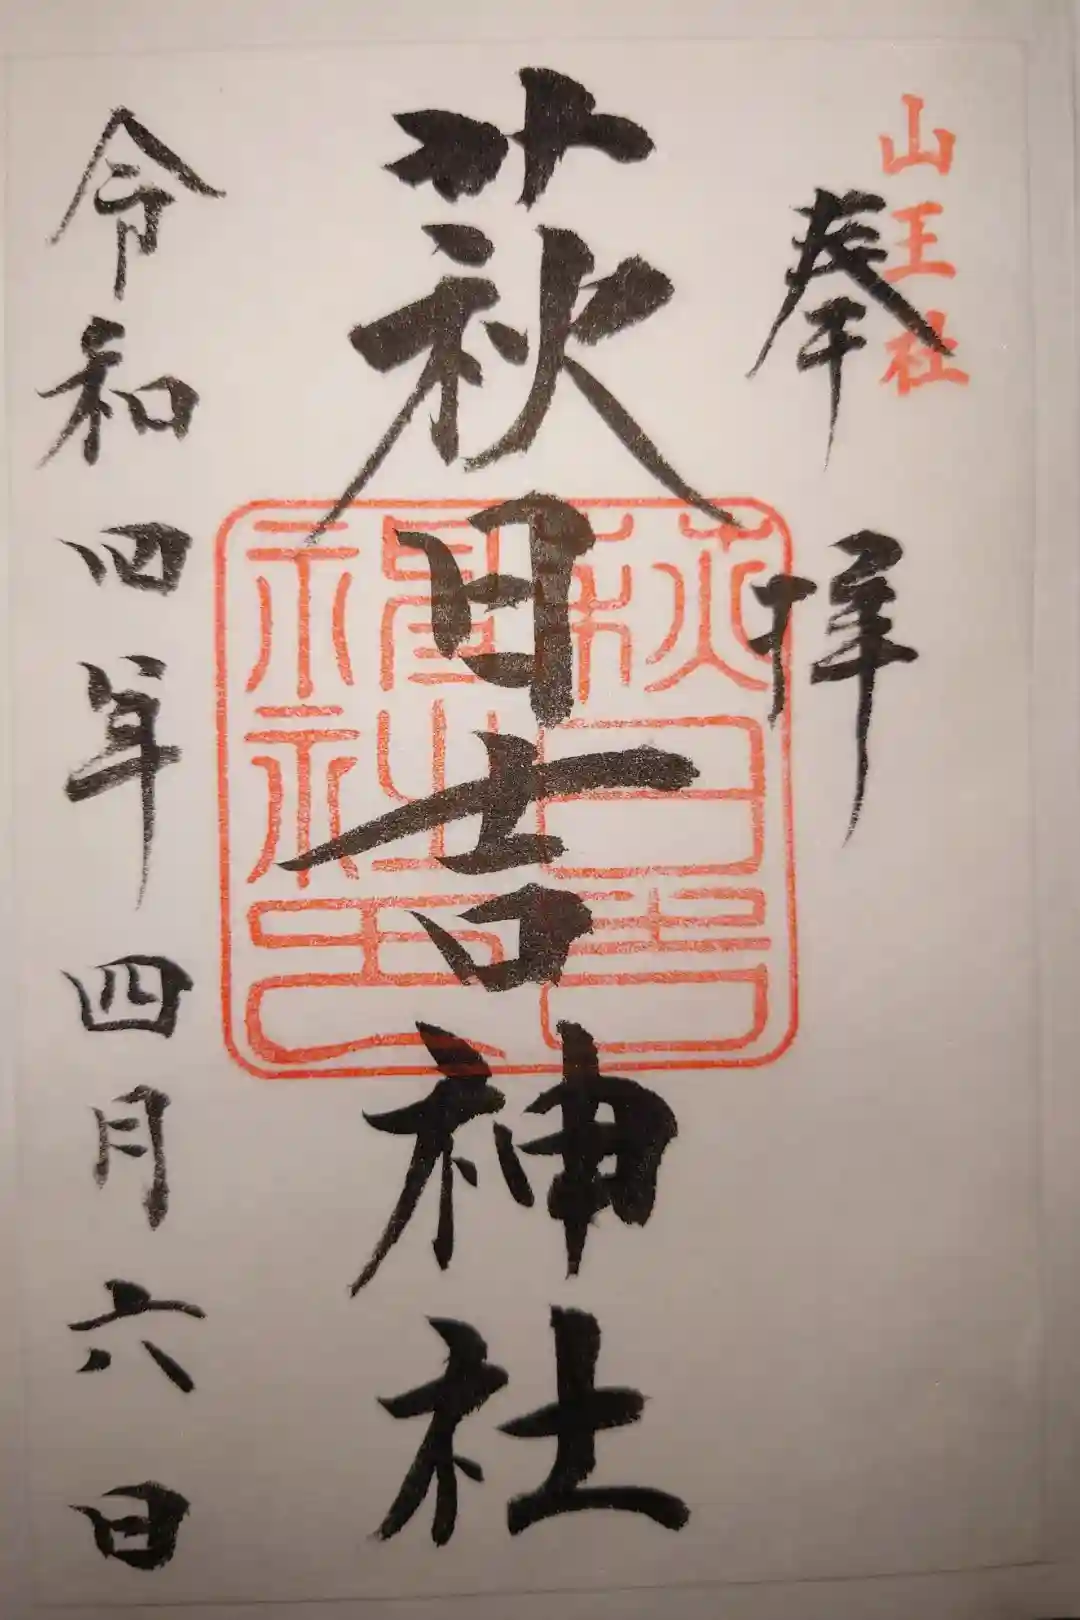 山王社
奉拝
萩日吉神社
萩日吉
神社印
令和四年四月六日